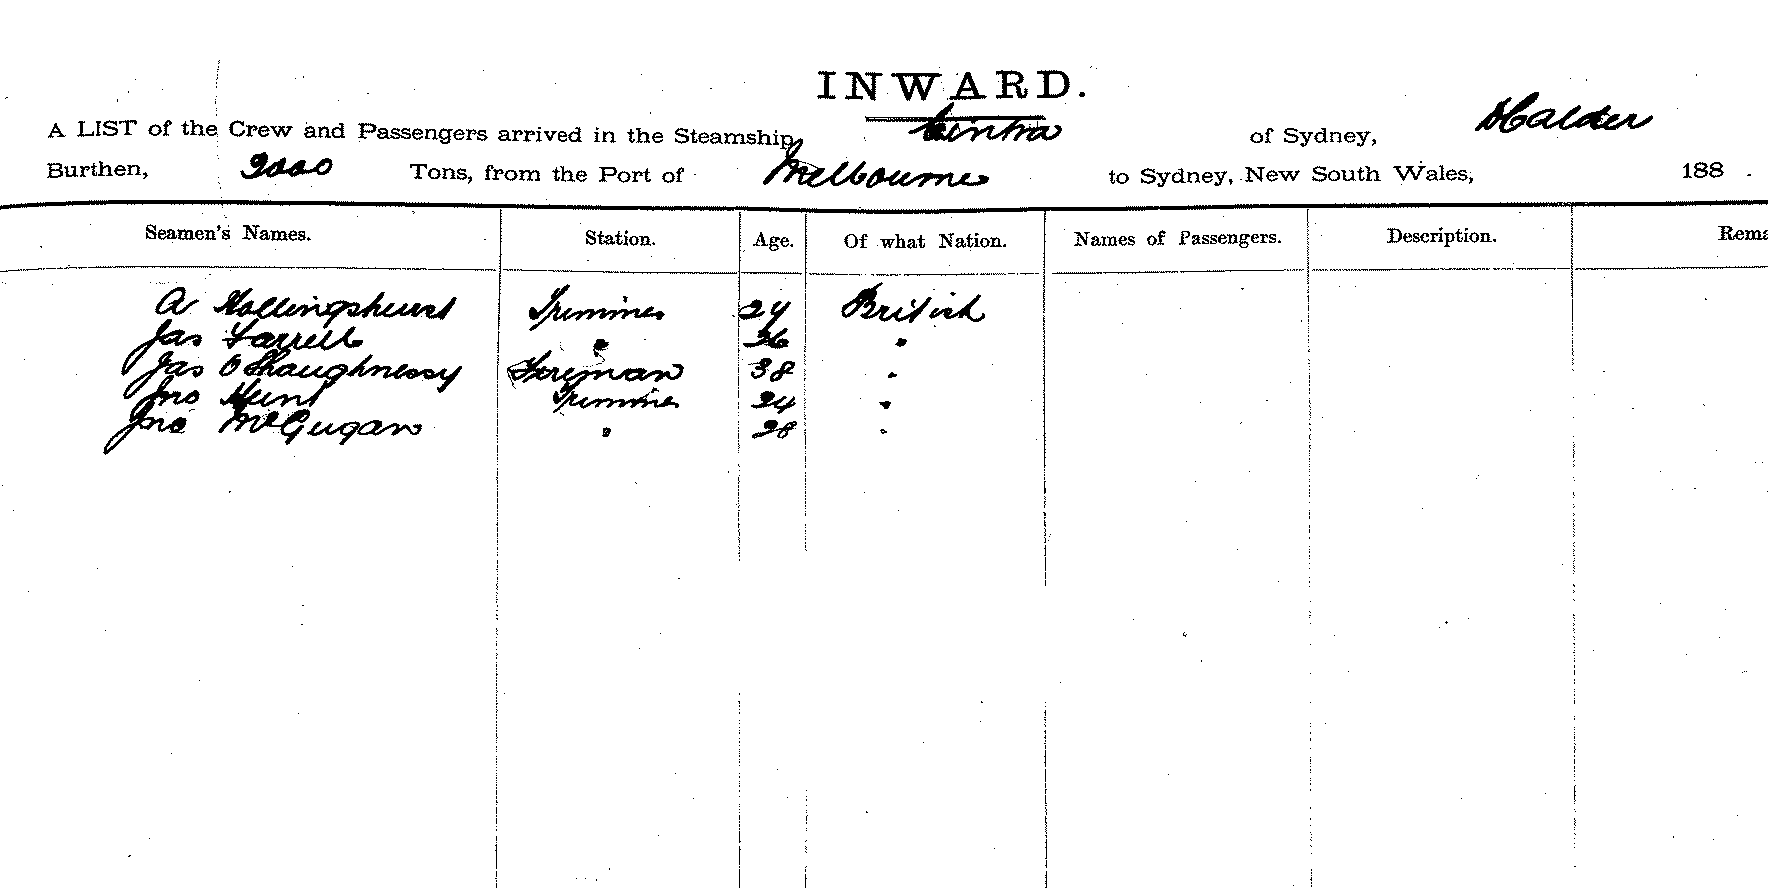 INWARD.
A LIST of the Crew and Passengers arrived in the Steamship Cintra of Sydney, Calder
Burthen, 2000 Tons, from the Port of Melbourne to Sydney, New South Wales, 188 .
Seamen's Names. Station. Age. Of what Nation. Names of Passengers. Description. Rema
A Hollingshurst Trimmer 24 British
Jas Farrell " 36 "
Jas O'Shaughnessy Foreman 38 "
Jno Hunt Trimmer 24 "
Jno McGugan " 28 "